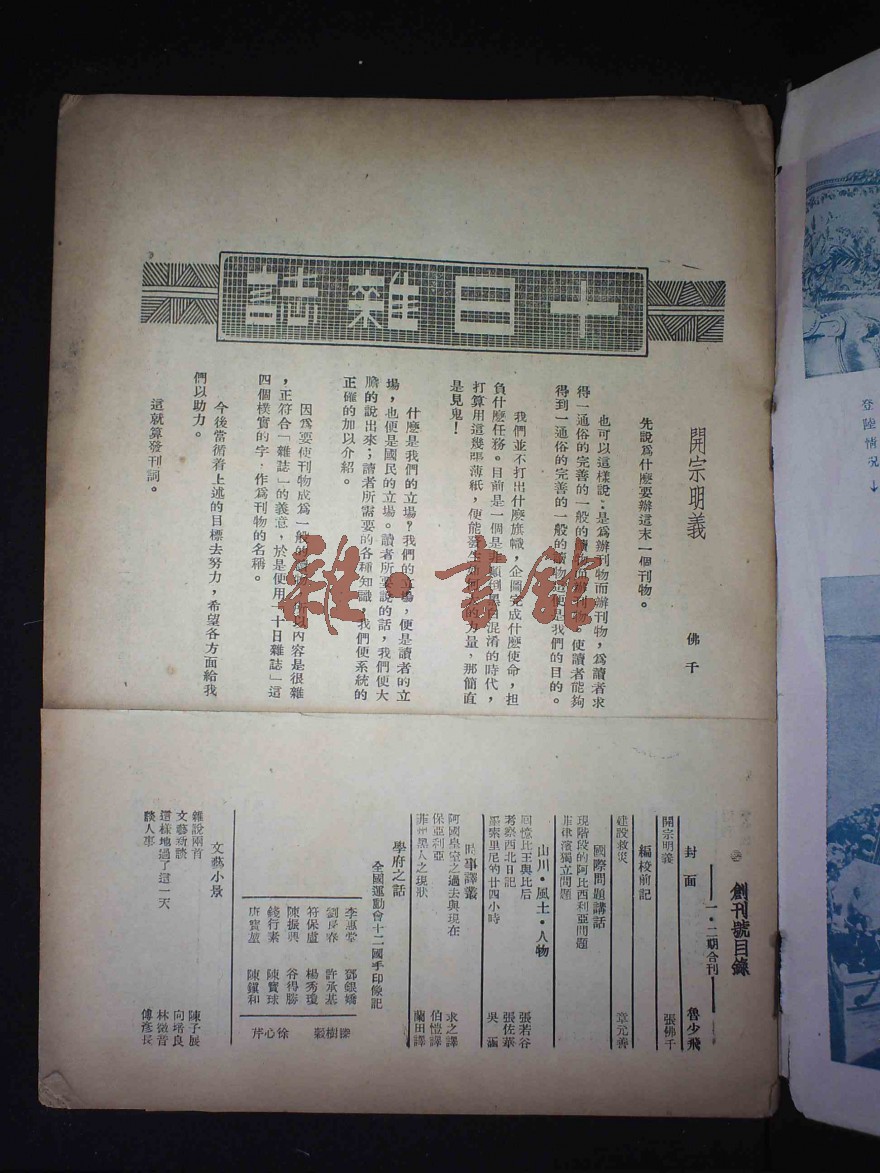 十日雜誌
開宗明義
佛千
先說爲什麼要辦這末一個刊物。
也可以這樣說：是爲辦刊物而辦刊物，爲讀者求
得一通俗的完善的一般的讀物而辦刊物。使讀者能夠
得到一通俗的完善的一般的讀物這便是我們的目的。
我們並不打出什麼旗幟，企圖完成什麼使命，担
負什麼任務。目前是一個是非顚倒黑白混淆的時代，
打算用這幾張薄紙，便能發生的力量，那簡直
是見鬼！
什麼是我們的立場？我們的立場，便是讀者的立
場，也便是國民的立場。讀者所要說的話，我們便大
膽的說出來；讀者所需要的各種知識，我們便系統的
正確的加以介紹。
因爲要使刊物成爲一般的讀物，所以內容是很雜
，正符合「雜誌」的義意，於是便用「十日雜誌」這
四個樸實的字，作爲刊物的名稱。
今後當循着上述的目標去努力，希望各方面給我
們以助力。
這就算發刊詞。
雜·書館
創刊號目錄
一·二期合刊
封面 魯少飛
開宗明義 張佛千
編校前記
建設救災 章元善
國際問題講話
現階段的阿比西利亞問題
菲律濱獨立問題
山川·風土·人物
回憶比王與比后 張若谷
考察西北日記 張佐華
墨索里尼的廿四小時 吳涵
時事譯叢
阿國皇室之過去與現在 求之譯
保亞利亞 伯愷譯
非洲黑人之現狀 蘭田譯
學府之話
全國運動會十二國手印像記
李惠堂 鄧銀嬌
劉長春 許承基
符保盧 楊秀瓊
陳振興 谷得勝
錢行素 陳寶球
唐寶堃 陳鎭和
陳樹穀 徐心芹
文藝小景
雜說兩首 陳子展
文藝新談 向培良
這樣地過了這一天 林微音
談人事 傅彥長
登陸情況↓